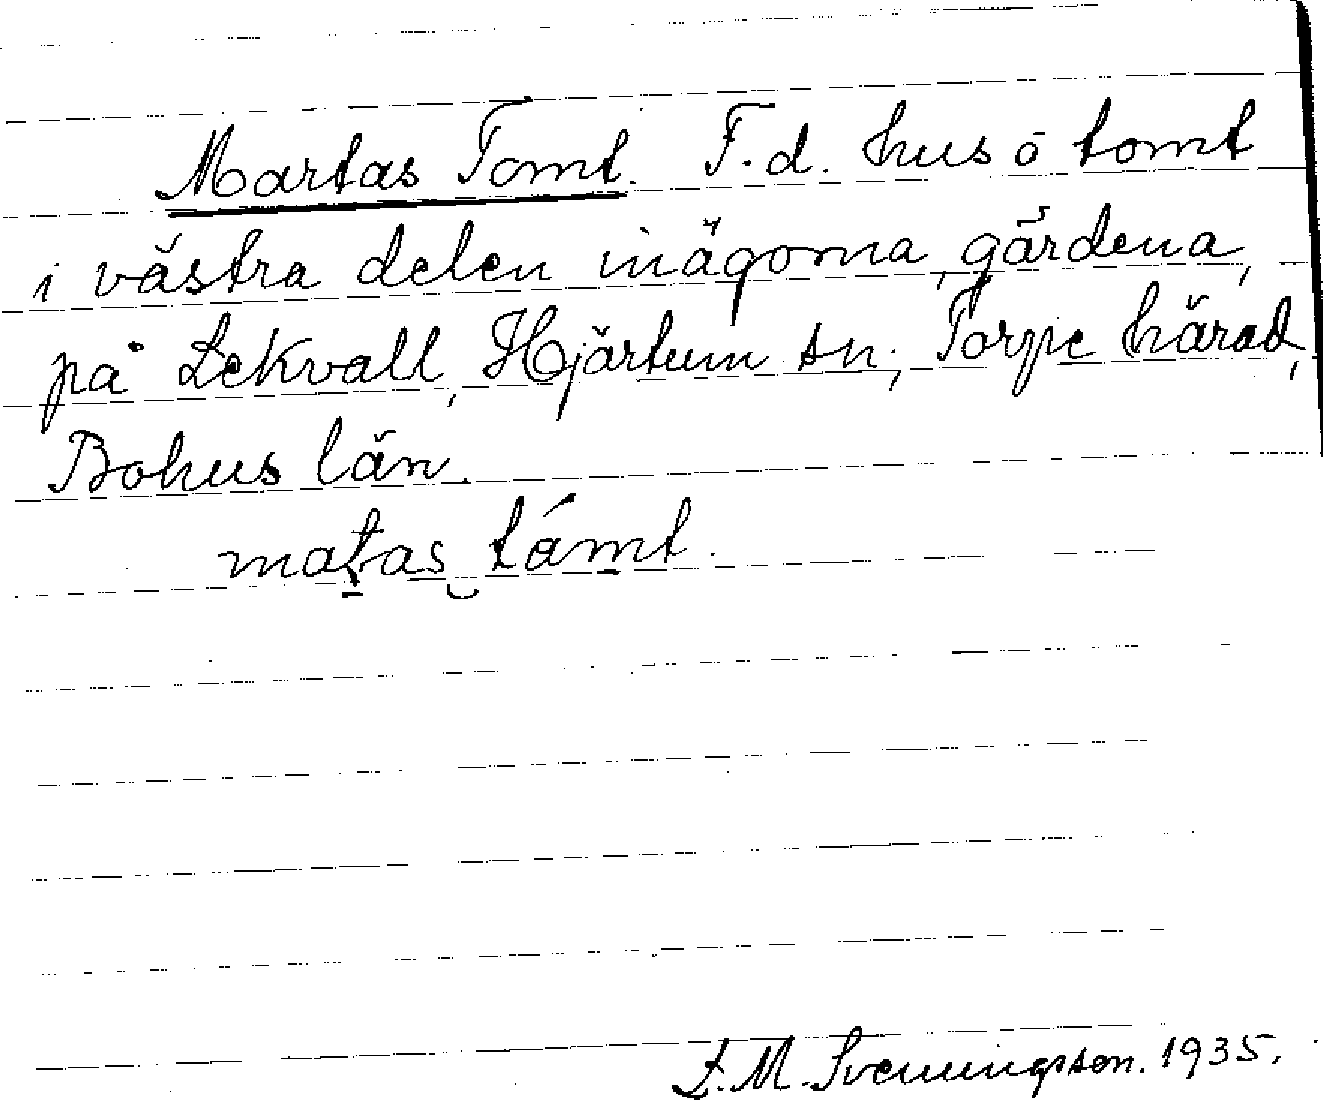 Martas Tomt. F.d. hus ō tomt
i västra delen inägorna, gärdena,
på Lekvall, Hjärtum sn, Torpe härad,
Bohus län.
matas támt.
F. M. Svenningsson. 1935.